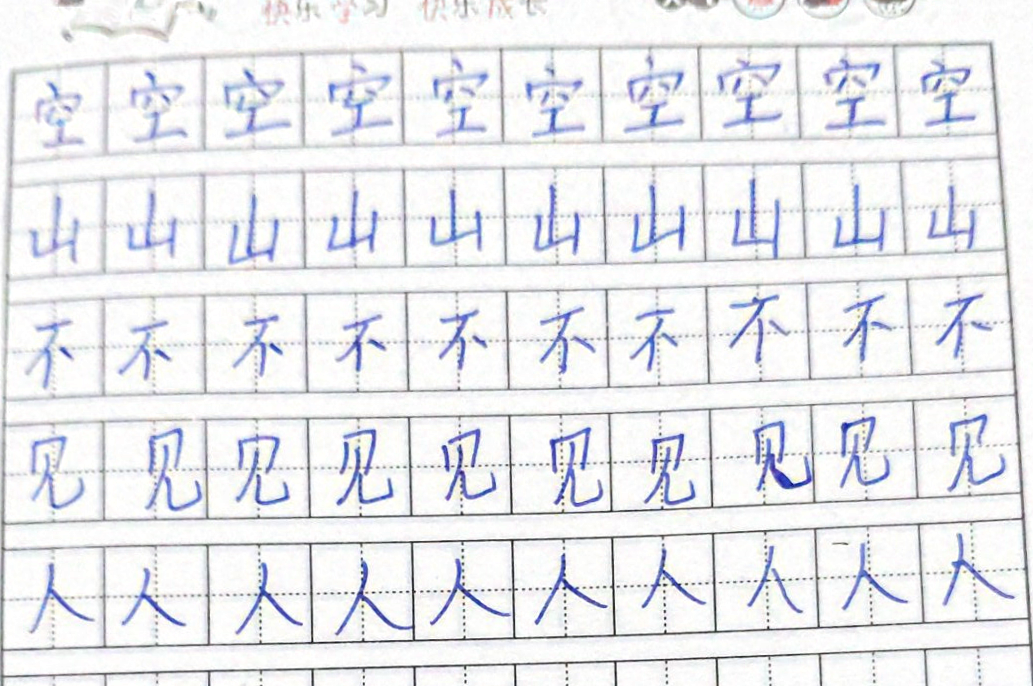 快乐学习 快乐成长
空空空空空空空空空空
山山山山山山山山山山
不不不不不不不不不不
见见见见见见见见见见
人人人人人人人人人人